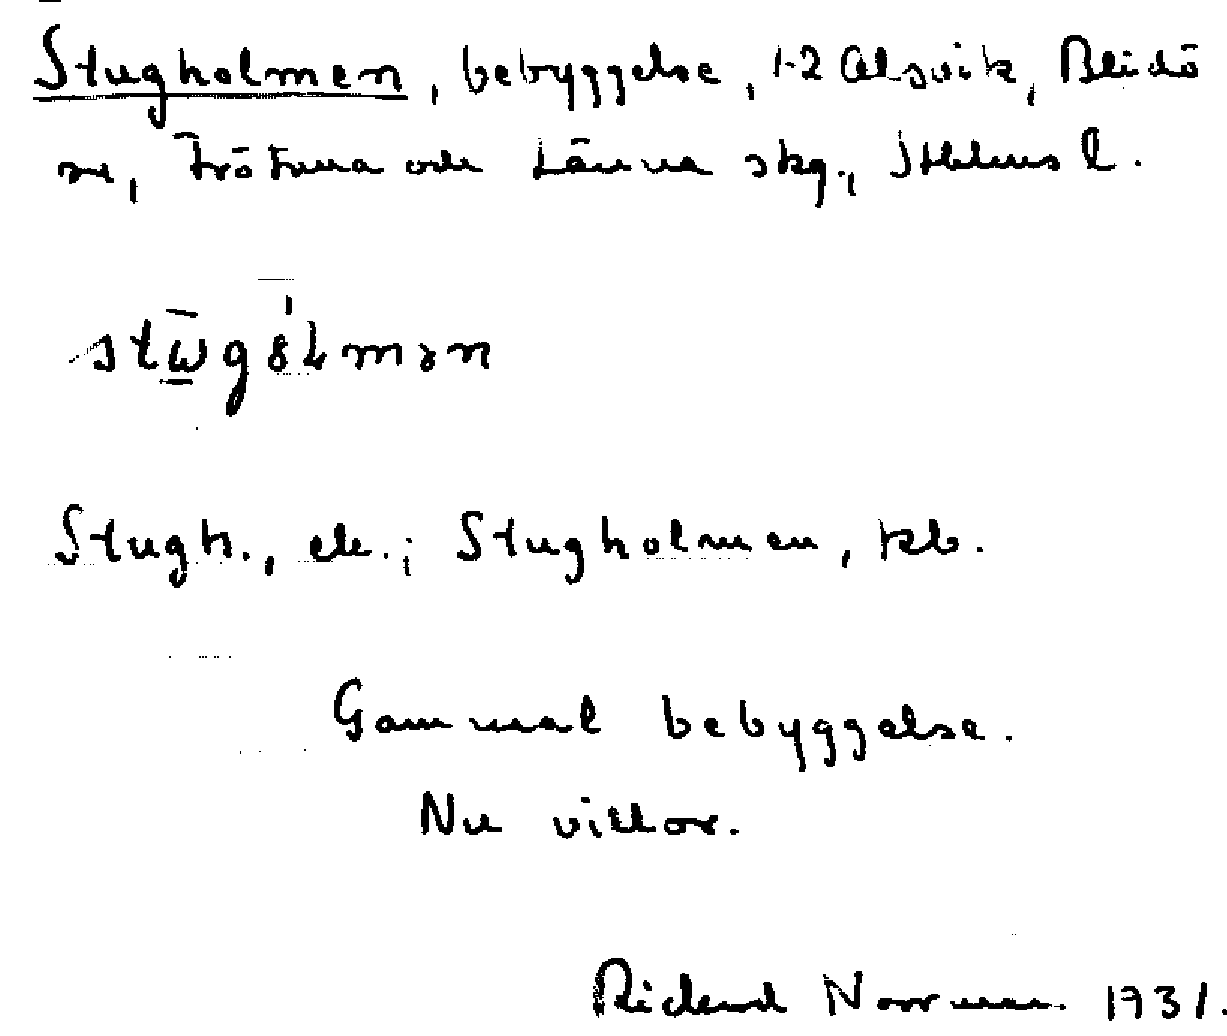 Stugholmen, bebyggelse, 1-2 Alsvik, Blidö
sn, Frötuna och Länna skg., Sthlms l.
stu̱̅gólmən
Stugh., ek.; Stugholmen, kb.
Gammal bebyggelse.
Nu villor.
Rickard Norrman 1931.